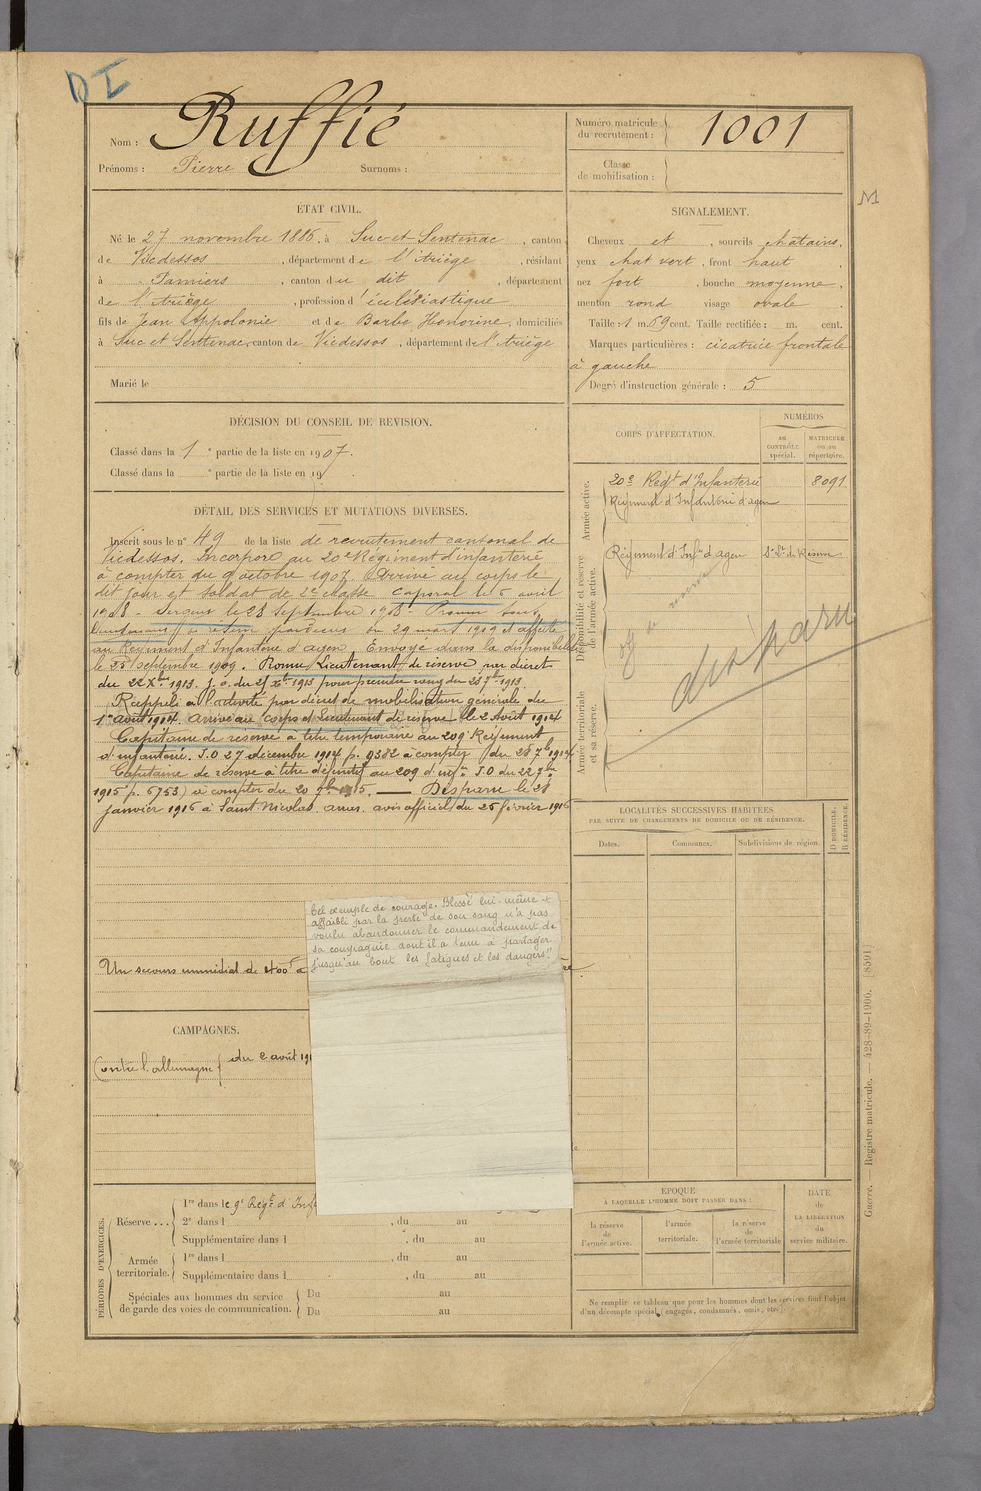 D I
Nom : Ruffié
Prénoms : Pierre Surnoms :
Numéro matricule
du recrutement : 1001
Classe
de mobilisation :
M
ÉTAT CIVIL.
Né le 27 novembre 1886, à Suc-et-Sentenac, canton
de Vicdessos, département de l'Ariège, résidant
à Pamiers, canton du dit, département
de l'Ariège, profession d'éclésiastique
fils de Jean Appolonie et de Barbe Honorine, domiciliés
à Suc et Sentenac, canton de Vicdessos, département de l'Ariège
Marié le
SIGNALEMENT.
Cheveux et , sourcils châtains,
yeux chat vert, front haut
nez fort, bouche moyenne,
menton rond visage ovale
Taille : 1 m. 69 cent. Taille rectifiée : m. cent.
Marques particulières : cicatrice frontale
à gauche
Degré d'instruction générale : 5
DÉCISION DU CONSEIL DE REVISION.
Classé dans la 1e partie de la liste en 1907.
Classé dans la e partie de la liste en 19
DÉTAIL DES SERVICES ET MUTATIONS DIVERSES.
Inscrit sous le n° 49 de la liste de recrutement cantonal de
Vicdessos. Incorporé au 20e Régiment d'infanterie
à compter du 9 octobre 1907. Arrivé au corps le
dit jour et soldat de 2e classe. Caporal le 5 avril
1908 - Sergent le 28 Septembre 1908 - Promu sous
lieutenant de réserve 29 mars 1909 et affecté
au Régiment d'Infanterie d'agen. Envoyé dans la disponibilité
le 25 septembre 1909. Promu Lieutenant de réserve par décret
du 22 Xbre 1913. J.O. du 25 Xbre 1913 pour prendre rang du 28 7bre 1913.
Rappelé à l'activité par décret de mobilisation générale du
1er Août 1914. arrivé au Corps et Lieutenant de réserve le 2 Août 1914
Capitaine de réserve à titre temporaire au 209e Régiment
d'infanterie. J.O 27 décembre 1914 p. 9382 à compter du 28 7bre 1914
Capitaine de réserve à titre définitif au 209 d'infie J.O du 22 7bre
1915 p. 6753) à compter du 20 7bre 1915. — Disparu le 28
janvier 1916 à Saint Nicolas. avis officiel du 25 février 1916
CORPS D'AFFECTATION.
NUMÉROS
AU
CONTRÔLE
spécial.
MATRICULE
ou au
répertoire.
Armée active.
20e Régt d'Infanterie 8091
Régiment d'Infanterie d'agen
Disponibilité et réserve
de l'armée active.
Régiment d'Infie d'agen St Lt de Réserve
disparu
Armée territoriale
et sa réserve.
LOCALITÉS SUCCESSIVES HABITÉES
PAR SUITE DE CHANGEMENTS DE DOMICILE OU DE RÉSIDENCE.
Dates.
Communes.
Subdivisions de région.
D DOMICILE,
R RÉSIDENCE.
bel exemple de courage. Blessé lui-même et
affaibli par la perte de son sang n'a pas
voulu abandonner le commandement de
sa compagnie dont il a tenu à partager
jusqu'au bout les fatigues et les dangers."
Un secours immédiat de
CAMPAGNES.
Contre l'allemagne du 2 août 191
PÉRIODES D'EXERCICES.
Réserve ...
1re dans le 9e Régt d'Inf
2e dans l , du au
Supplémentaire dans l , du au
Armée
territoriale.
1re dans l , du au
Supplémentaire dans l , du au
Spéciales aux hommes du service
de garde des voies de communication.
Du au
Du au
ÉPOQUE
À LAQUELLE L'HOMME DOIT PASSER DANS :
la réserve
de
l'armée active.
l'armée
territoriale.
la réserve
de
l'armée territoriale
DATE
de
LA LIBÉRATION
du
service militaire.
Ne remplir ce tableau que pour les hommes dont les services font l'objet
d'un décompte spécial (engagés, condamnés, omis, etc.).
Guerre. — Registre matricule. — 428-89-1906. [8591]